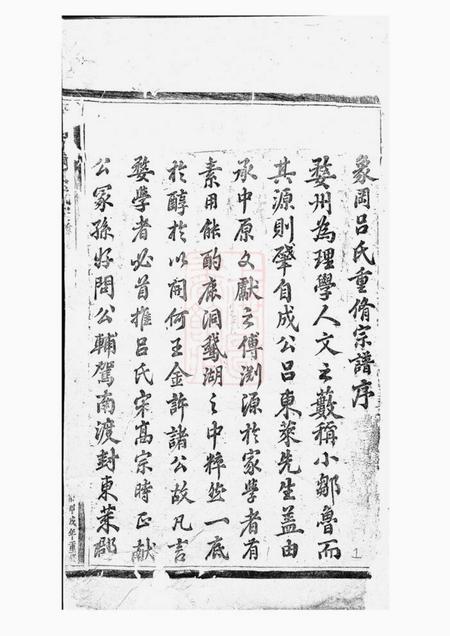 象岡吕氏重脩宗譜序
婺州為理學人文之藪稱小鄒魯而
其源則肇自成公吕東萊先生盖由
承中原文獻之傳渕源於家學者有
素用能酌鹿洞鵞湖之中粹然一底
於醇於以開何王金許諸公故凡言
婺學者必首推吕氏宋髙宗時正献
公冢孫好問公輔駕南渡封東萊郡
1